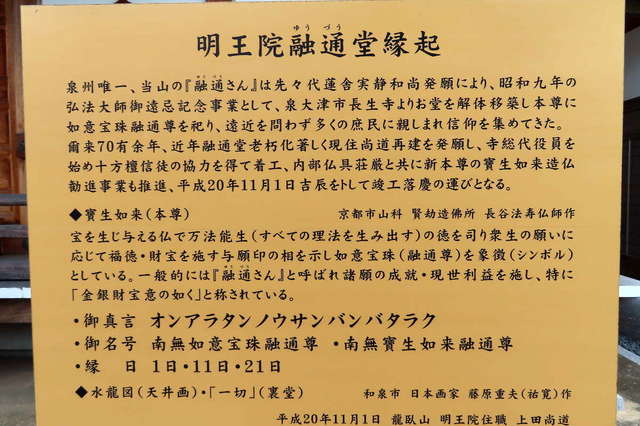 ゆう づう
明王院融通堂縁起
泉州唯一、当山の『融通さん』は先々代蓮舎実静和尚発願により、昭和九年の
弘法大師御遠忌記念事業として、泉大津市長生寺よりお堂を解体移築し本尊に
如意宝珠融通尊を祀り、遠近を問わず多くの庶民に親しまれ信仰を集めてきた。
爾来70有余年、近年融通堂老朽化著しく現住尚道再建を発願し、寺総代役員を
始め十方檀信徒の協力を得て着工、内部仏具荘厳と共に新本尊の寶生如来造仏
勧進事業も推進、平成20年11月1日吉辰をトして竣工落慶の運びとなる。
◆寶生如来(本尊) 京都市山科 賢劫造佛所 長谷法寿仏師作
宝を生じ与える仏で万法能生(すべての理法を生み出す)の徳を司り衆生の願いに
応じて福徳・財宝を施す与願印の相を示し如意宝珠(融通尊)を象徴(シンボル)
としている。一般的には『融通さん』と呼ばれ諸願の成就・現世利益を施し、特に
「金銀財宝意の如く」と称されている。
・御真言 オンアラタンノウサンバンバタラク
・御名号 南無如意宝珠融通尊 ・南無寶生如来融通尊
・縁 日 1日・11日・21日
◆水龍図(天井画)・「一切」(裏堂) 和泉市 日本画家 藤原重夫(祐寛)作
平成20年11月1日 龍臥山 明王院住職 上田尚道